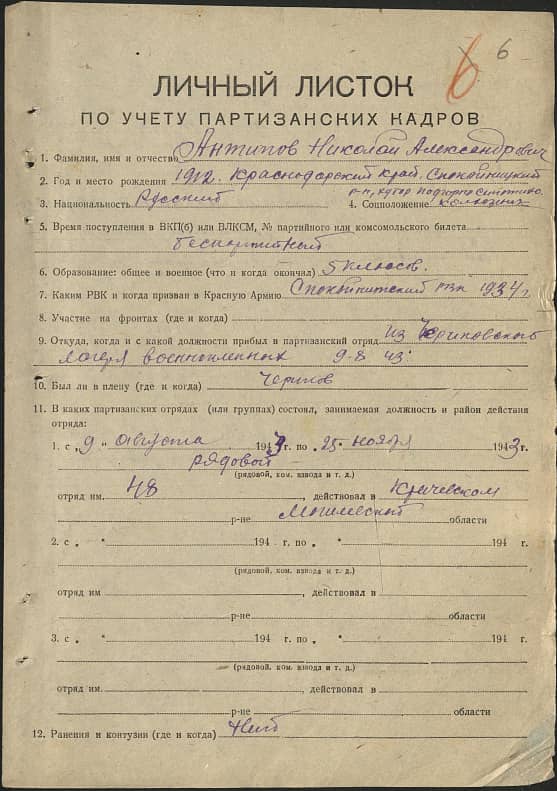 6 6
ЛИЧНЫЙ ЛИСТОК
ПО УЧЕТУ ПАРТИЗАНСКИХ КАДРОВ
1. Фамилия, имя и отчество Антипов Николай Александрович
2. Год и место рождения 1912. Краснодарский край, Спокойницкий
р-н, хутор
3. Национальность Русский 4. Соцположение колхозник
5. Время поступления в ВКП(б) или ВЛКСМ, № партийного или комсомольского билета
беспартийный
6. Образование: общее и военное (что и когда окончил) 5 классов.
7. Каким РВК и когда призван в Красную Армию Спокойнитский РВК 1934 г
8. Участие на фронтах (где и когда)
9. Откуда, когда и с какой должности прибыл в партизанский отряд из Чериковского
лагеря военнопленных 9-8 43.
10. Был ли в плену (где и когда) Чериков
11. В каких партизанских отрядах (или группах) состоял, занимаемая должность и район действия
отряда:
1. с „ 9 " августа 1943 г. по „ 25 " ноября 1943 г.
рядовой
(рядовой, ком. взвода и т. д.)
отряд им. 48 , действовал в Кричевском
р-не Могилевской области
2. с „ " 194 г. по „ " 194 г.
(рядовой, ком. взвода и т. д.)
отряд им , действовал в
р-не области
3. с „ " 194 г. по „ " 194 г.
(рядовой, ком. взвода и т. д.)
отряд им. , действовал в
р-не области
12. Ранения и контузии (где и когда) Нет